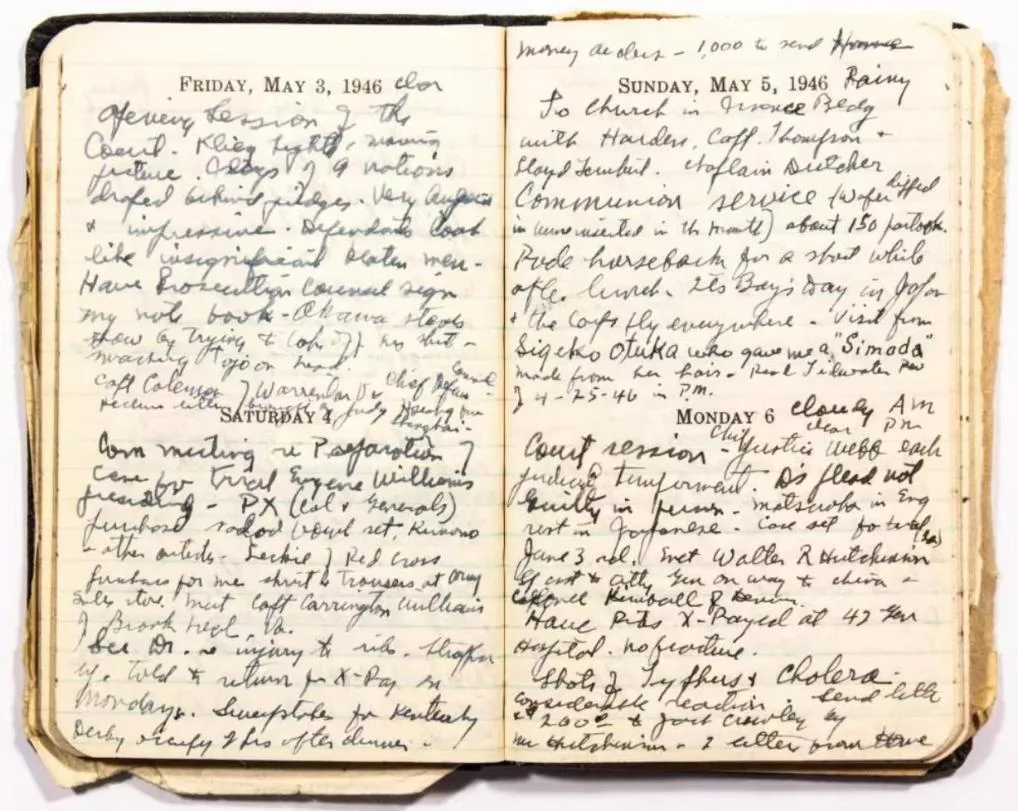 FRIDAY, MAY 3, 1946 clear
Opening Session of the
Court. Klieg lights, moving
picture. Flags of 9 nations
draped behind judges. Very August
& impressive. Defendants look
like insignificant beaten men.
Have Prosecution Counsel sign
my note book - Okawa steals
show by trying to take off his shirt -
smacking Tojo on head.
Capt Coleman Chief Defense Counsel
receives letter Judy
Shanghai.
SATURDAY 4
Com meeting re Preparation of
case for trial Eugene Williams
presiding - PX (Col & Generals)
purchase salad bowl set, Kimono
& other articles. Leckie of Red Cross
purchases for me shirt & trousers at army
sales store. Met Capt Carrington Williams
of Brook Va.
See Dr. re injury to rib. Strapped
up. Told to return for X-Ray on
Monday. Sweepstakes for Kentucky
Derby occupy us after dinner.
money orders - 1,000 to send Home
SUNDAY, MAY 5, 1946 Rainy
To Church in Bldg
with Harders, Capt. Thompson &
Lloyd. Chaplain Dutcher
Communion service (Wafer dipped
in wine inserted in the mouth) about 150 partook.
Rode horseback for a short while
after lunch. It's Boy's Day in Japan
& the Carps fly everywhere - Visit from
Sigeko Otuka who gave me a "Simada"
made from her hair - Read Tidewater Rev
of 4-25-46 in P.M.
MONDAY 6 cloudy AM
clear PM
Court session - Chief Justice Webb each
Ds plead not
Guilty in person - Matsuoka in Eng
rest in Japanese. Case set for trial
June 3rd. Met Walter R Hutchinson
asst to atty Gen on way to China -
Colonel Kimball &
Have Ribs X-Rayed at 42 Gen
Hospital. No fracture.
Shots of Typhus & Cholera -
considerable reaction. Send letter
& $200 to Jack Crowley by
Mr Hutchinson - 2 letters from Home